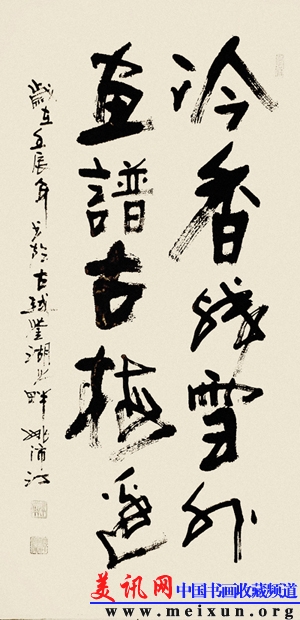 冷香残雪外
画譜古梅邊
歲在壬辰年书於古越鑒湖之畔
美讯网 中国书画收藏频道
www.meixun.org